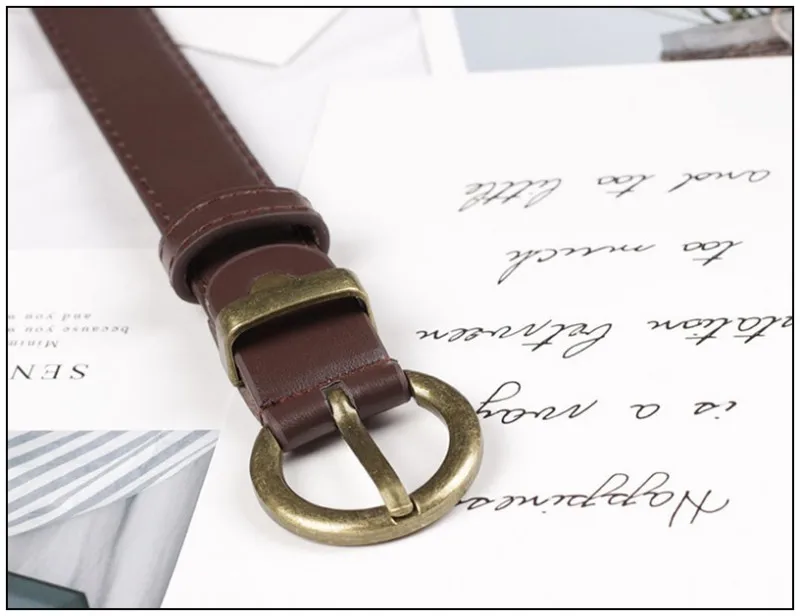 Happines
is a way
tation between
too much
and too little
SEN
Minim
because you w
and you w